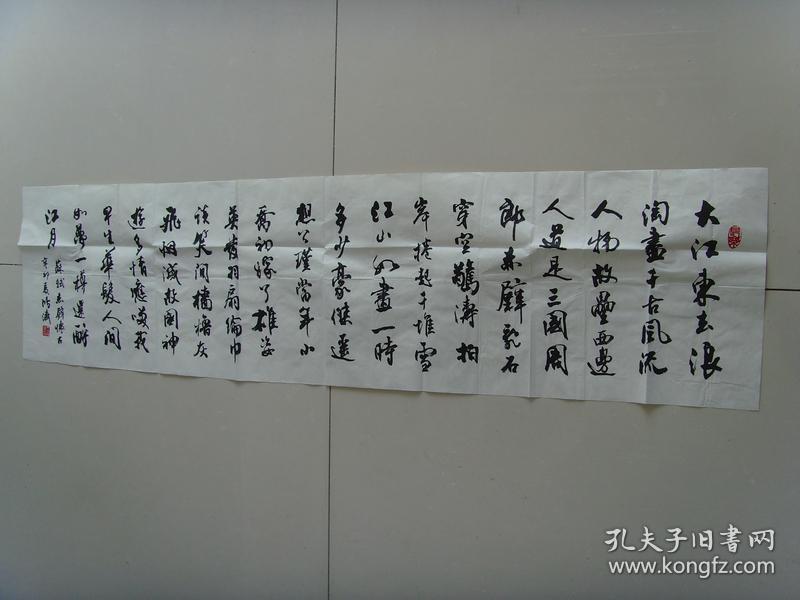 大江東去浪
淘盡千古風流
人物故壘西邊
人道是三國周
郎赤壁亂石
穿空驚濤拍
岸捲起千堆雪
江山如畫一時
多少豪傑遥
想公瑾當年小
喬初嫁了雄姿
英發羽扇倫巾
談笑間檣櫓灰
飛烟滅故國神
遊多情應笑我
早生華髮人間
如夢一樽還酹
江月
蘇軾赤壁懷古
辛卯
孔夫子旧书网
www.kongfz.com